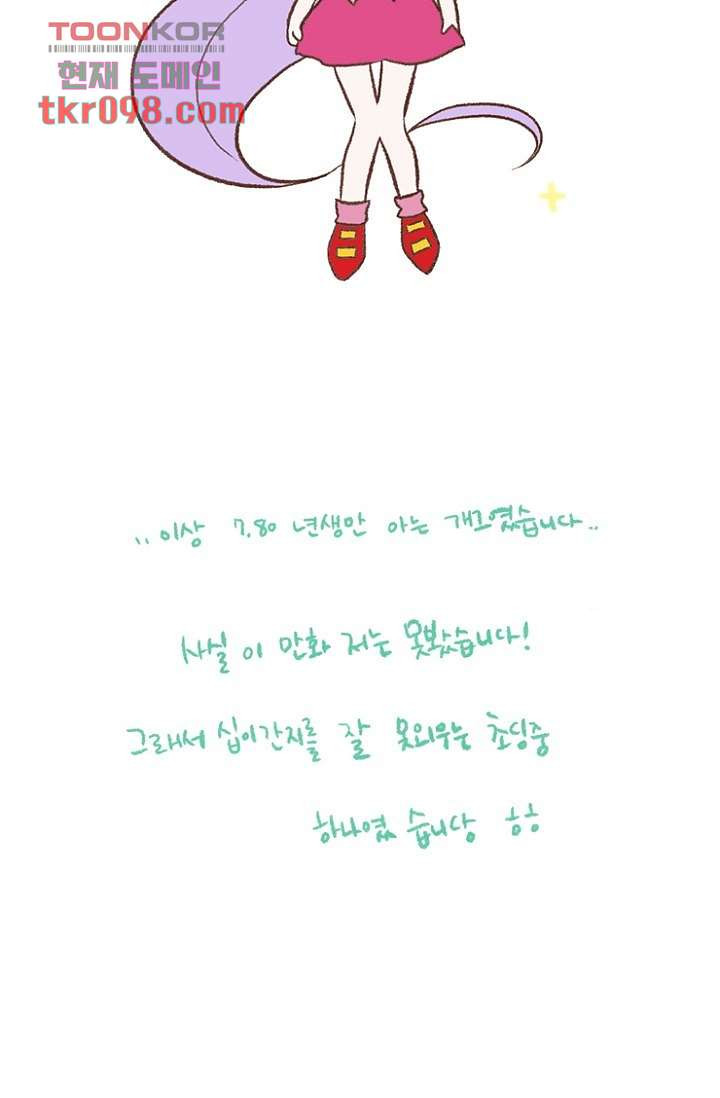 TOONKOR
현재 도메인
tkr098.com
..이상 7.80 년생만 아는 개그였습니다..
사실 이 만화 저는 못봤습니다!
그래서 십이간지를 잘 못외우는 초딩중
하나였 습니당 ㅎㅎ